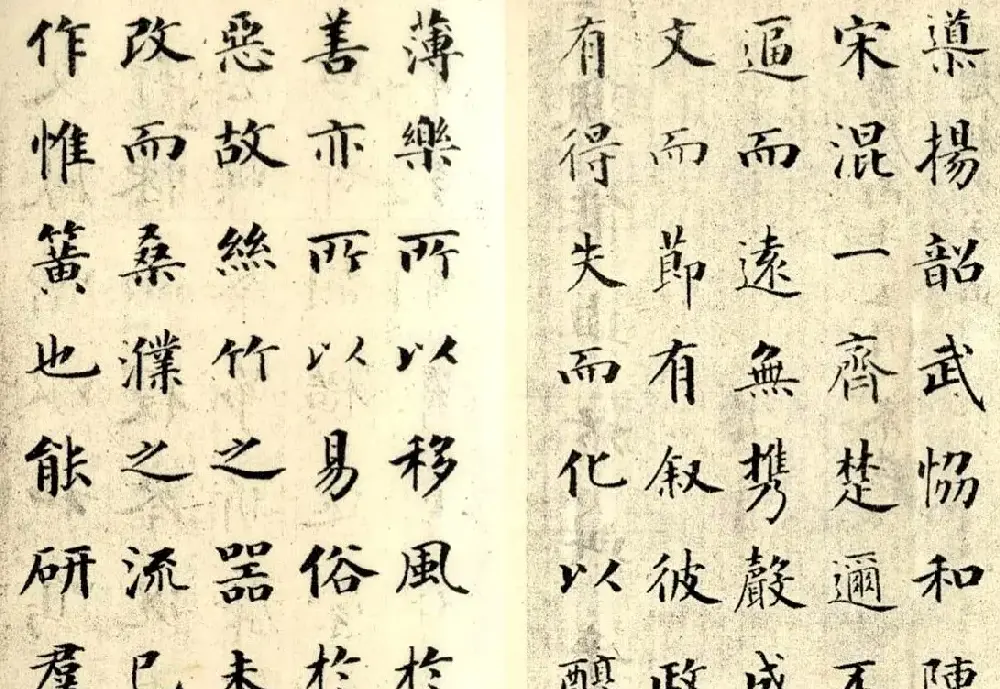 導揚韶武協和陳
宋混一齊楚邇不
逼而遠無携聲成
文而節有叙彼政
有得失而化以醇
薄樂所以移風於
善亦所以易俗於
惡故絲竹之器未
改而桑濮之流已
作惟簧也能研羣